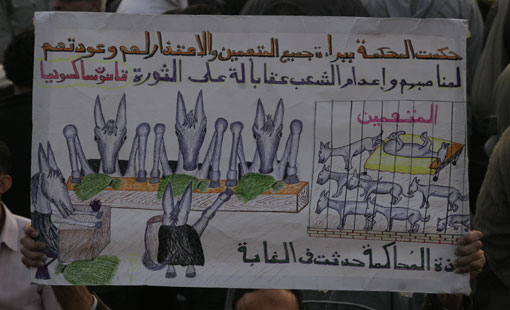 حكمت المحكمة ببراءة جميع المتهمين والاعتذار لهم وعودتهم
لمناصبهم وإعدام الشعب عقابا له على الثورة
المتهمين
ذة المحاكمة حدثت في الغابة